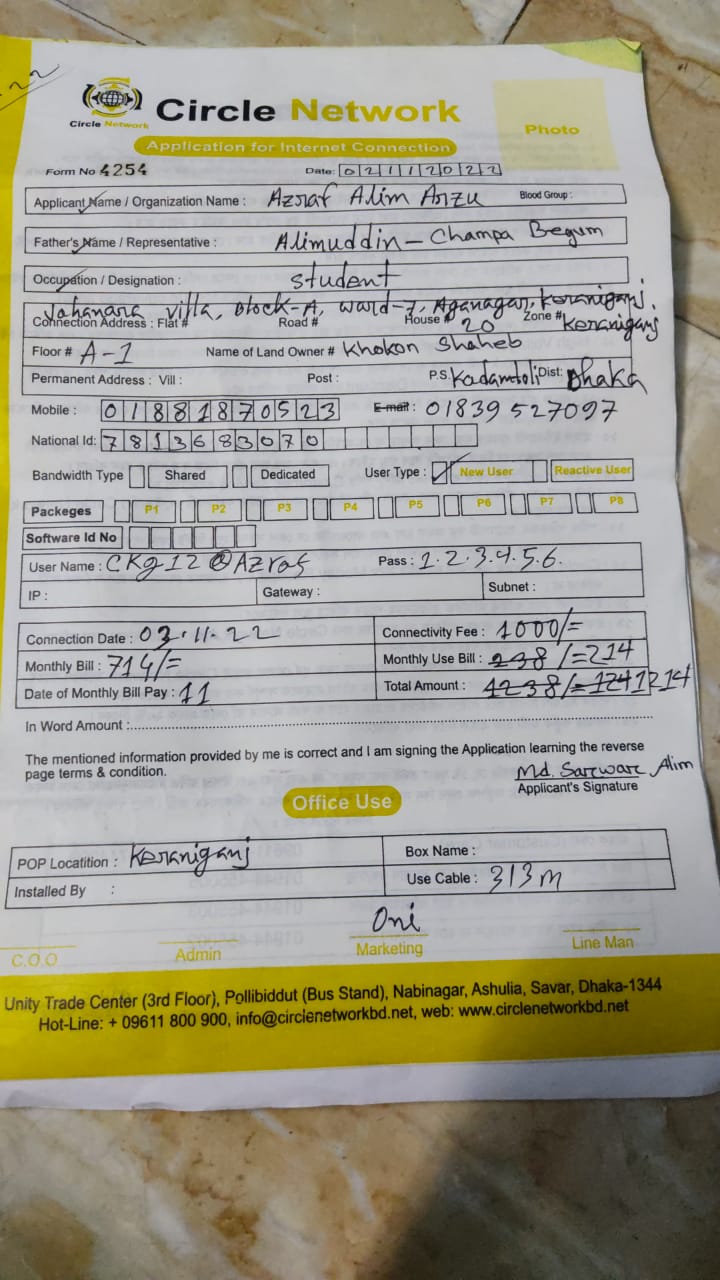 Circle Network
Circle Network
Photo
Application for Internet Connection
Form No 4254 Date: 02112022
Applicant Name / Organization Name : Azraf Alim Arzu Blood Group :
Father's Name / Representative : Alimuddin - Champa Begum
Occupation / Designation : Student
Jahanara villa, block-A, ward-7, Aganagar, Keraniganj.
Connection Address : Flat # Road # House # 20 Zone # Keraniganj
Floor # A-1 Name of Land Owner # Khokon Shaheb
Permanent Address : Vill : Post : P.S. Kadamtoli Dist: Dhaka
Mobile : 01881870523 E-mail : 01839527097
National Id: 7813683070
Bandwidth Type Shared Dedicated User Type : New User Reactive User
Packeges P1 P2 P3 P4 P5 P6 P7 P8
Software Id No
User Name : CKg12@Azraf Pass : 1.2.3.4.5.6.
IP : Gateway : Subnet :
Connection Date : 03.11.22 Connectivity Fee : 1000/=
Monthly Bill : 714/= Monthly Use Bill : 238/=214
Date of Monthly Bill Pay : 11 Total Amount : 1238/= 124 1214
In Word Amount :
The mentioned information provided by me is correct and I am signing the Application learning the reverse
page terms & condition.
Md. Sarwar Alim
Applicant's Signature
Office Use
POP Locatition : Keraniganj Box Name :
Installed By : Use Cable : 313m
Oni
C.O.O Admin Marketing Line Man
Unity Trade Center (3rd Floor), Pollibiddut (Bus Stand), Nabinagar, Ashulia, Savar, Dhaka-1344
Hot-Line: + 09611 800 900, info@circlenetworkbd.net, web: www.circlenetworkbd.net